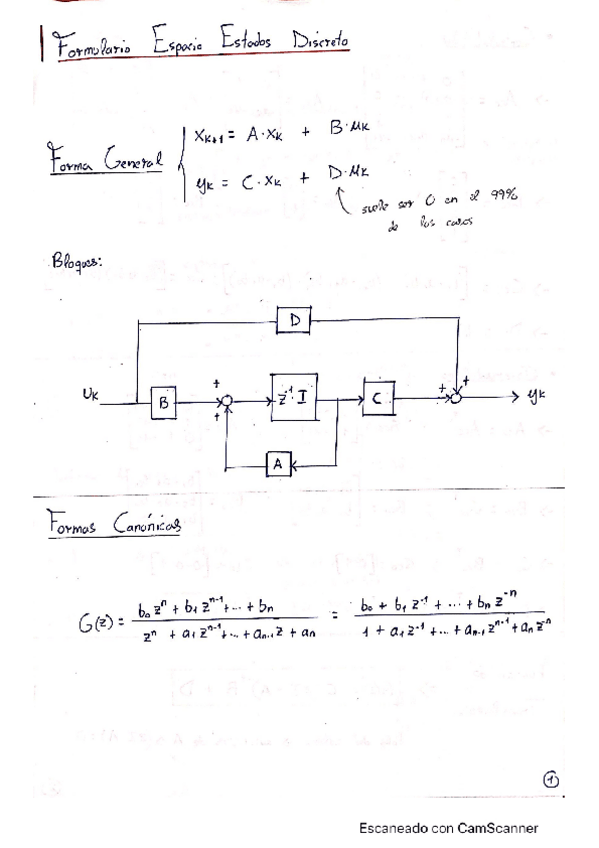 Formulario Espacio Estados Discreto
Forma General
x_{k+1} = A·x_k + B·μ_k
y_k = C·x_k + D·μ_k
suele ser 0 en el 99%
de los casos
Bloques:
D
U_k B + + z^{-1}·I C + + y_k
A
Formas Canónicas
G(z) = \frac{b_0 z^n + b_1 z^{n-1} + ... + b_n}{z^n + a_1 z^{n-1} + ... + a_{n-1} z + a_n} = \frac{b_0 + b_1 z^{-1} + ... + b_n z^{-n}}{1 + a_1 z^{-1} + ... + a_{n-1} z^{n-1} + a_n z^{-n}}
1
Escaneado con CamScanner